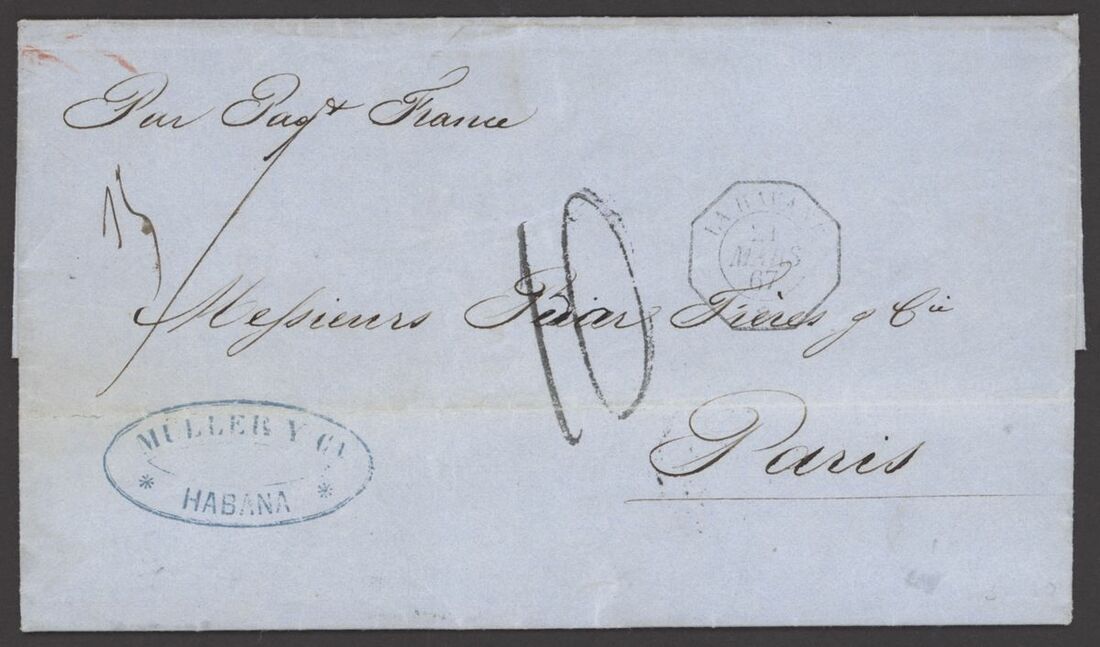 Par Paqt France
10
LA HAVANE
21
MARS
67
Messieurs Biar Frères y Cie
Paris
MULLER Y CA
HABANA